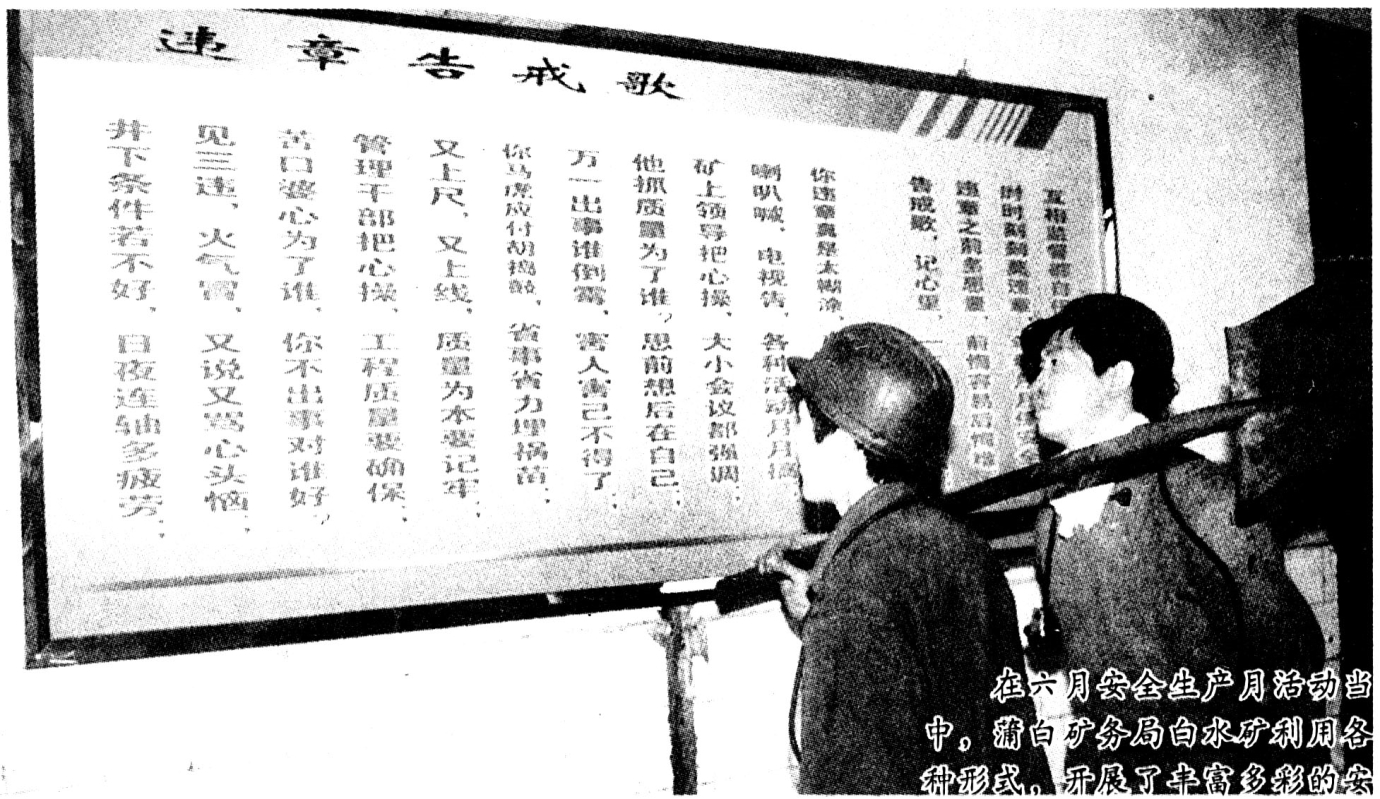 违章告戒歌
井下条件若不好，日夜连轴多疲劳；
见三违，火气冒，又说又骂心头恼，
苦口婆心为了谁，你不出事对谁好，
管理干部把心操，工程质量要确保；
又上尺，又上线，质量为本要记牢，
你马虎应付胡捣鼓，省事省力埋祸苗；
万一出事谁倒霉，害人害己不得了，
他抓质量为了谁？思前想后在自己；
矿上领导把心操，大小会议都强调；
喇叭喊，电视告，各种活动月月搞，
你违章真是太糊涂，
告戒歌，记心里，一
违章之前多思量，前悔容易后悔难
时时刻刻莫违章，
互相监督
在六月安全生产月活动当
中，蒲白矿务局白水矿利用各
种形式，开展了丰富多彩的安